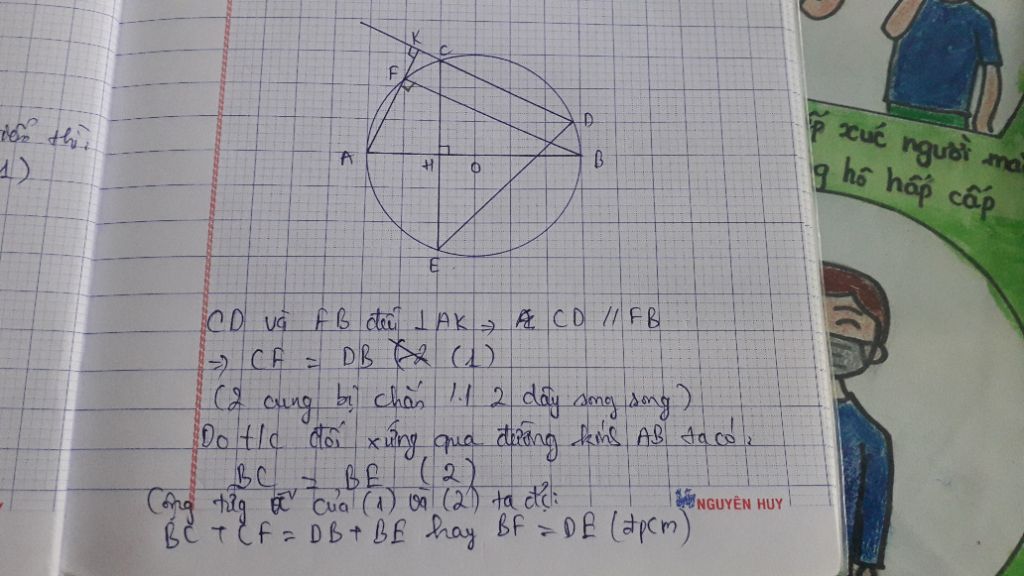 K
C
F
D
A
H
O
B
E
CD và FB đều ⊥ AK → CD // FB
→ CF = DB (1)
(2 cung bị chắn 2 dây song song)
Do đối xứng qua đường AB ta có:
BC = BE (2)
Cộng từng vế của (1) và (2) ta đ:
BC + CF = DB + BE hay BF = DE (đpcm)
NGUYÊN HUY
1)
xúc người
hô hấp cấp